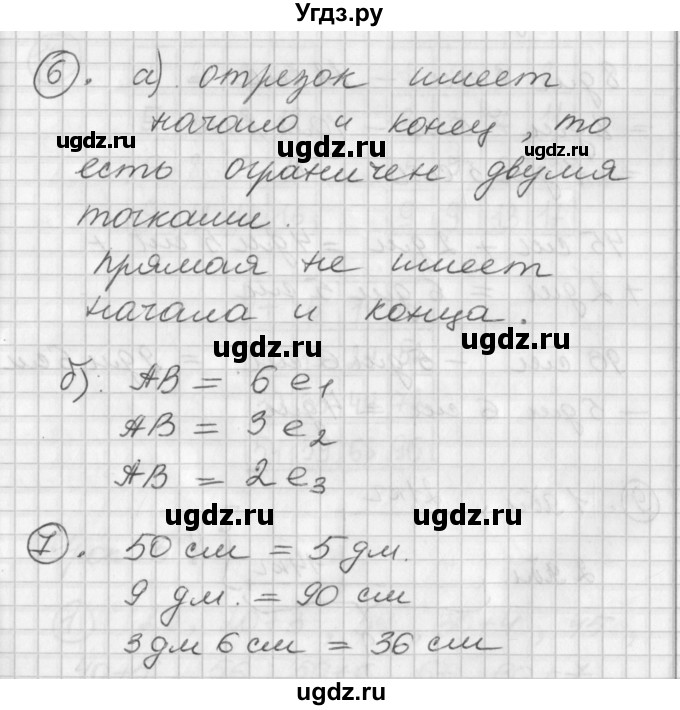 Угдз.ру
6. а) отрезок имеет
начало и конец, то
ugdz.ru ugdz.ru ugdz.ru
есть ограничен двумя
точками.
прямая не имеет
начала и конца.
ugdz.ru
б). AB = 6 e1
AB = 3 e2
AB = 2 e3
ugdz.ru ugdz.ru
7. 50 см = 5 дм.
9 дм. = 90 см
3 дм 6 см = 36 см
ugdz.ru